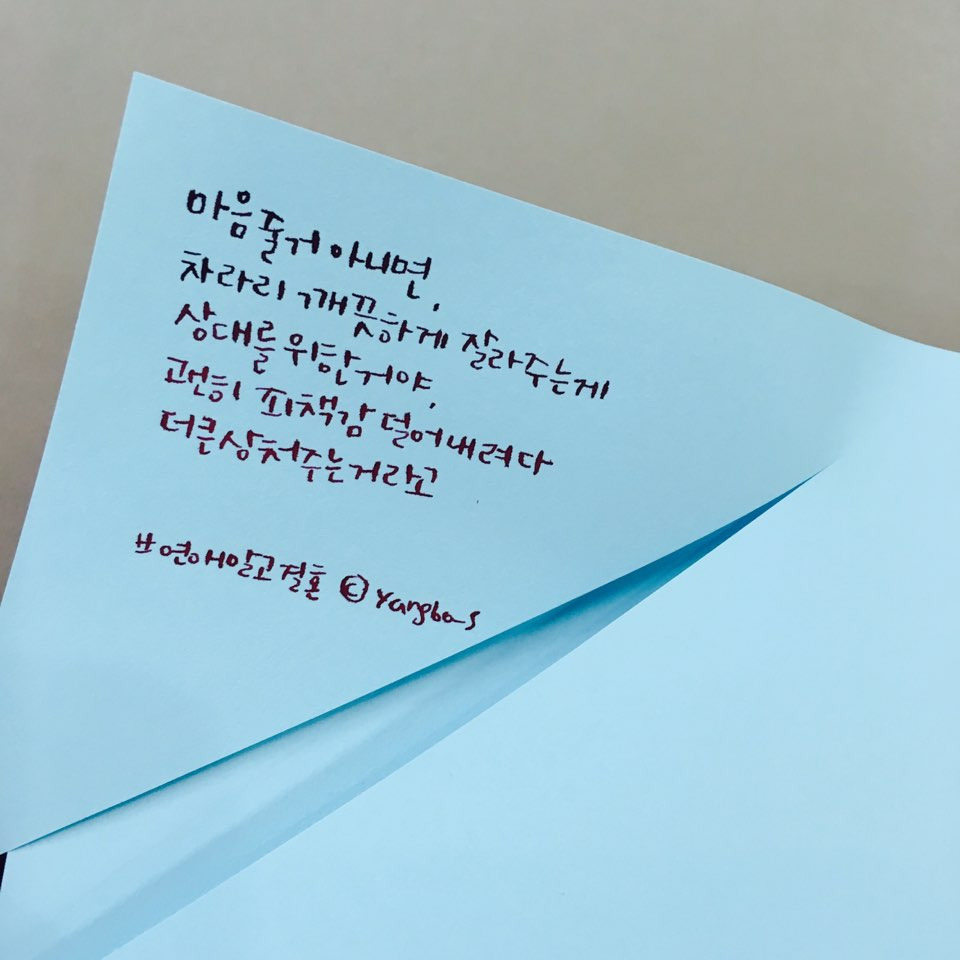 마음줄거 아니면,
차라리 깨끗하게 잘라주는게
상대를 위한거야.
괜히 죄책감 덜어내려다
더큰상처주는거라고
#연애말고결혼 ©yangbas